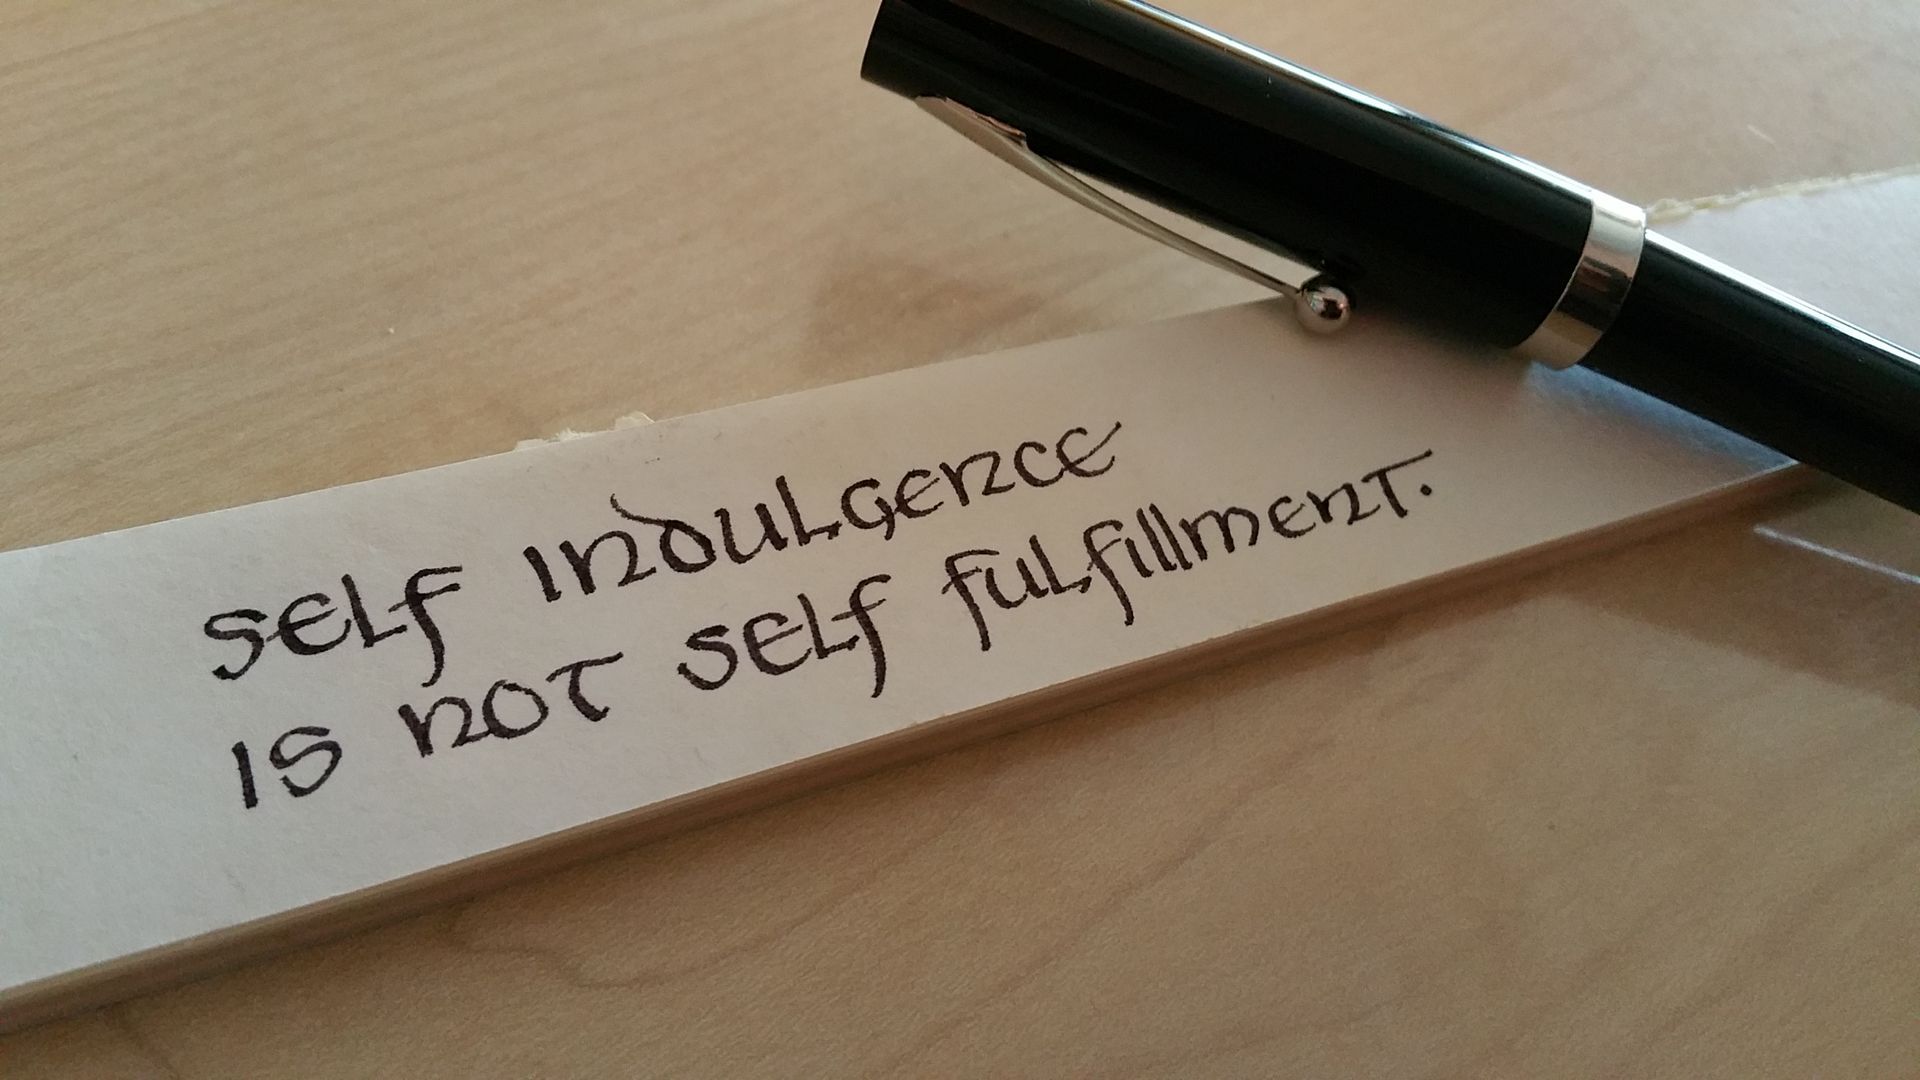 self indulgence
is not self fulfillment.